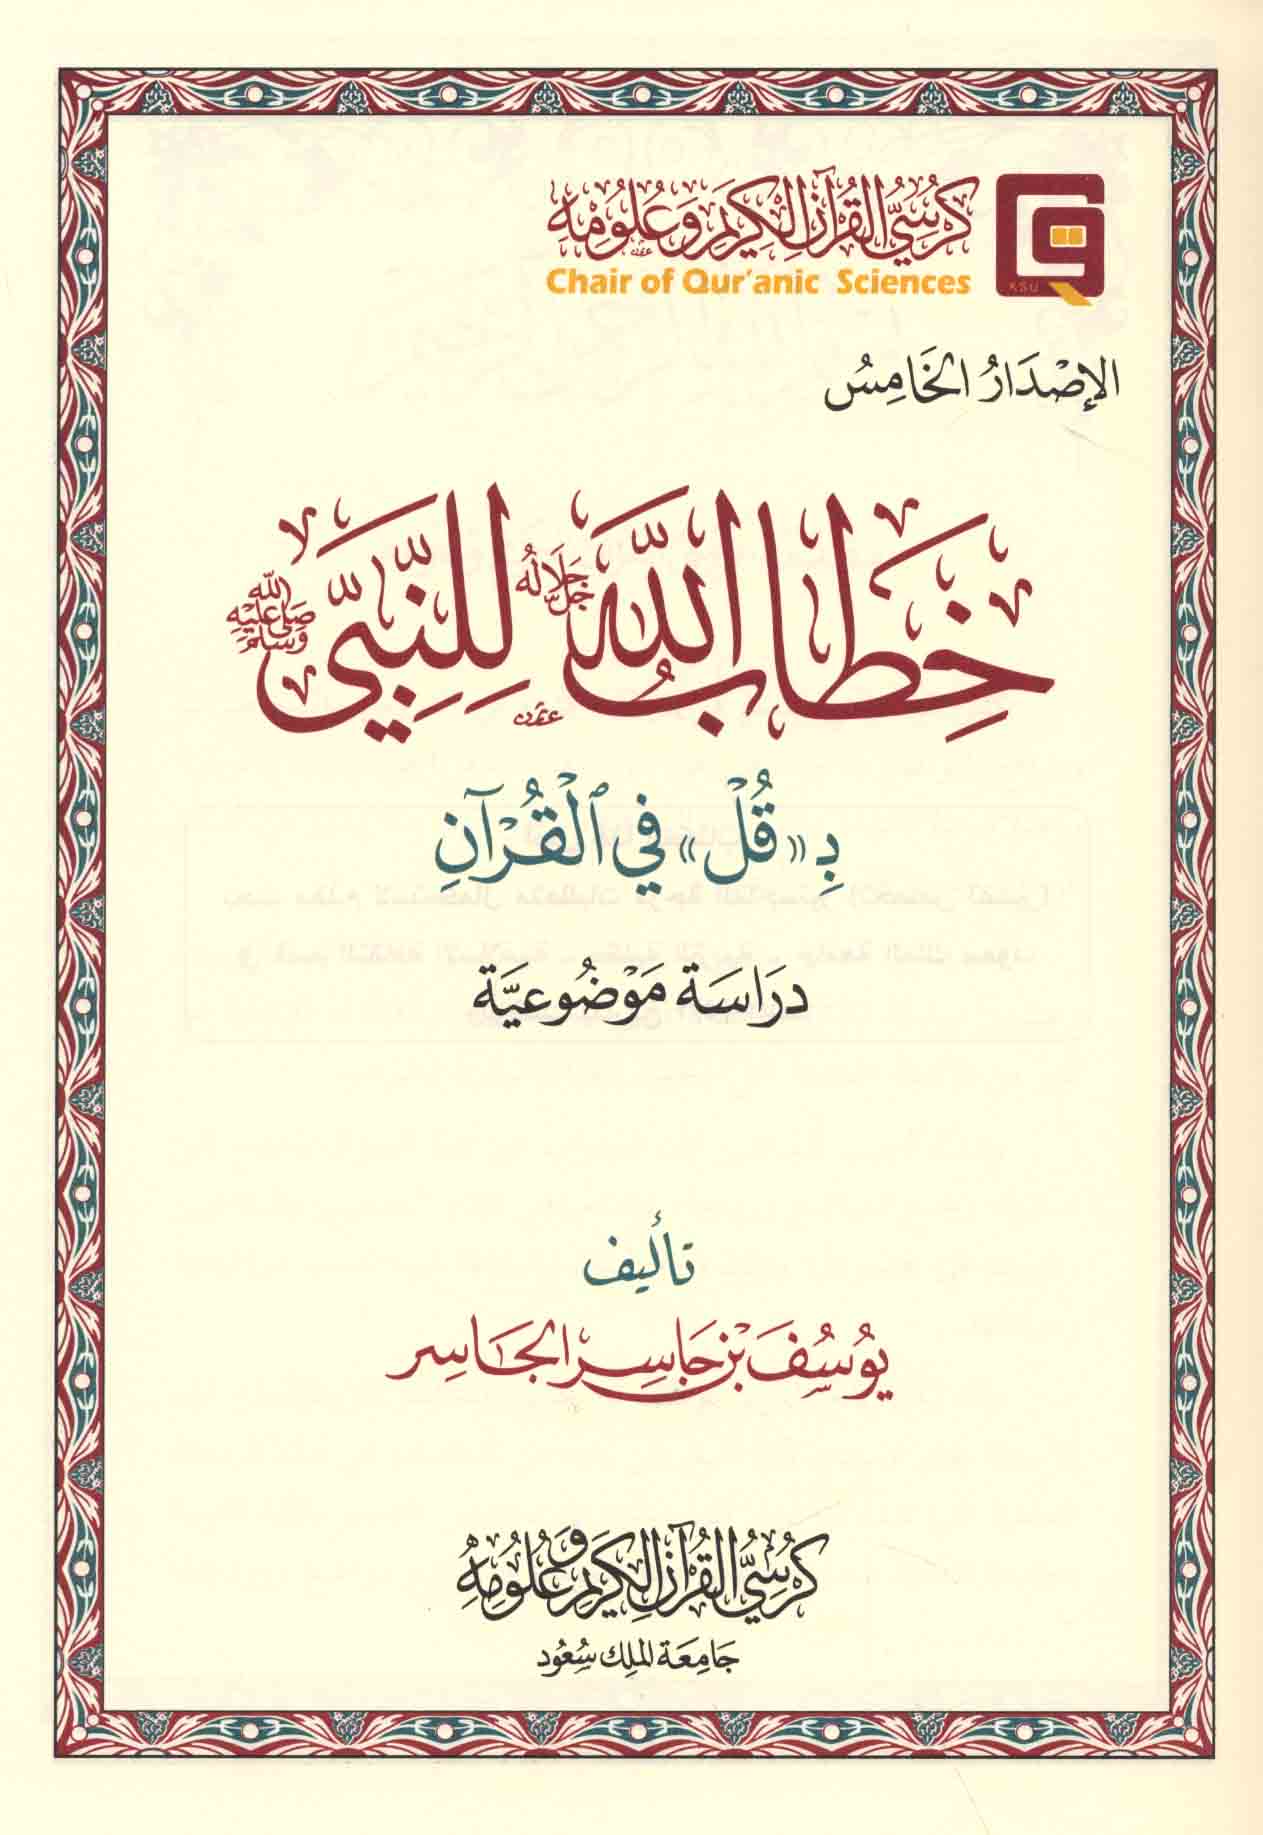 كُرْسِيُّ القُرْآنِ الكَرِيمِ وَعُلُومِهِ
Chair of Qur'anic Sciences
KSU
الإِصْدَارُ الخَامِسُ
خِطَابُ اللَّهِ جَلَّ جَلَالُهُ لِلنَّبِيِّ صَلَّى اللَّهُ عَلَيْهِ وَسَلَّمَ
بِـ «قُلْ» فِي الْقُرْآنِ
دِرَاسَة مَوْضُوعِيَّة
تأليف
يُوسُفَ بْنِ جَاسِرِ الجَاسِر
كُرْسِيُّ القُرْآنِ الكَرِيمِ وَعُلُومِهِ
جَامِعَة الملِك سُعُود